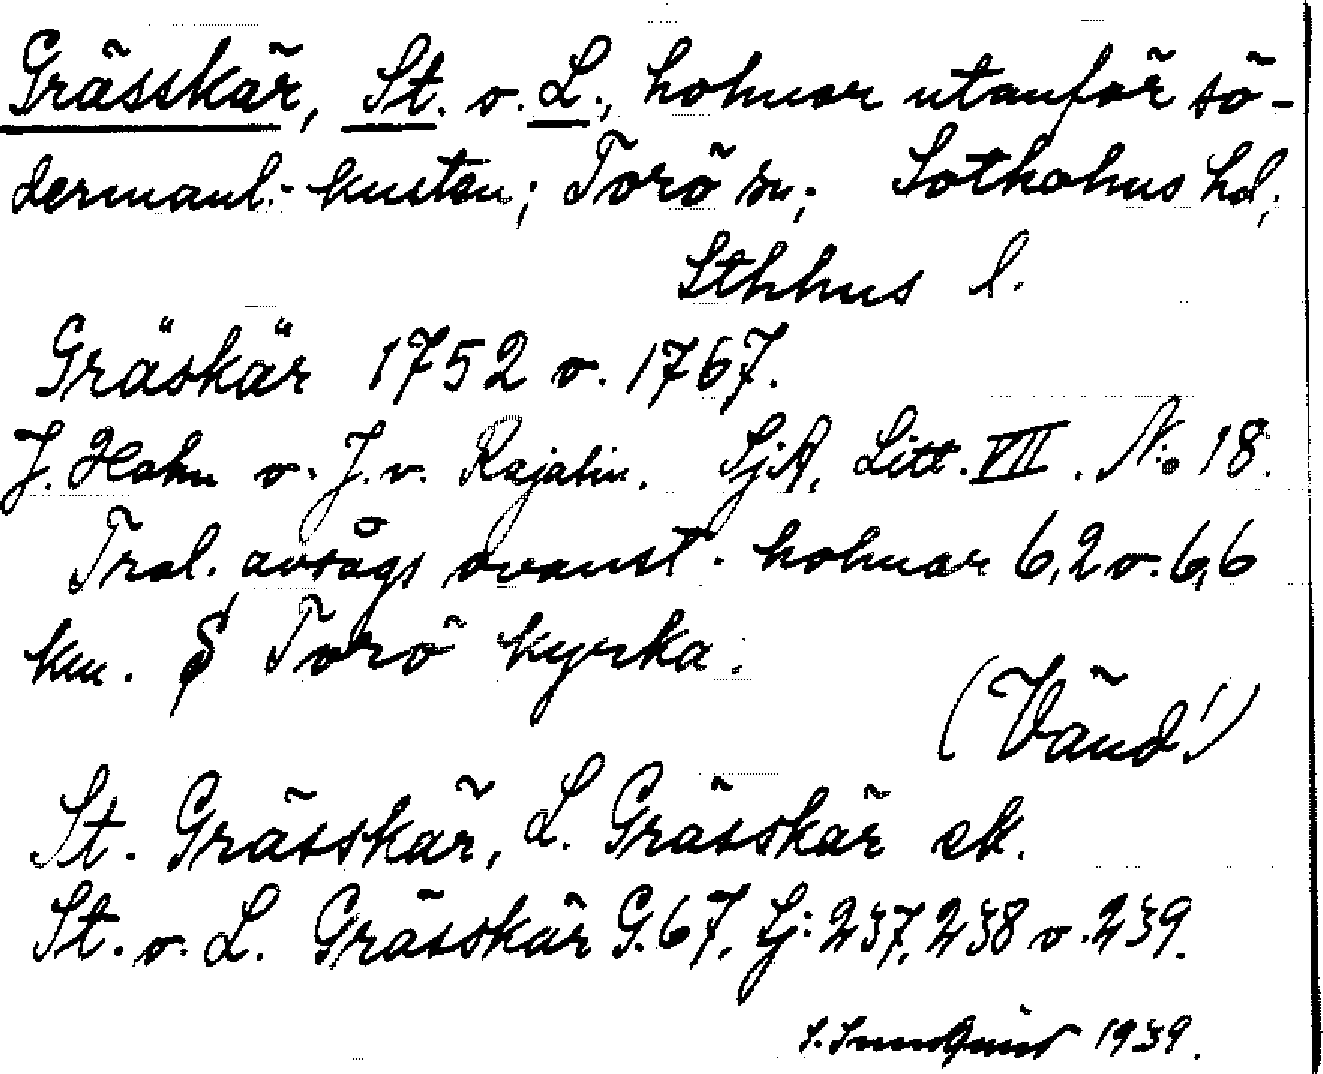 Grässkär, St. o. L., holmar utanför sö-
dermanl.- kusten; Torö sn; Sotholms hd;
Sthlms l.
Gräskär 1752 o. 1767.
J. Hahn o. J. v. Rajalin. SjA, Litt. VII. No 18.
Trol. avsågs ovanst. holmar 6,2 o. 6,6
km. S Torö kyrka.
(Vänd!)
St. Grässkär, L. Grässkär ek.
St. o. L. Grässkär G. 67. Sj: 237, 238 o. 239.
1939.